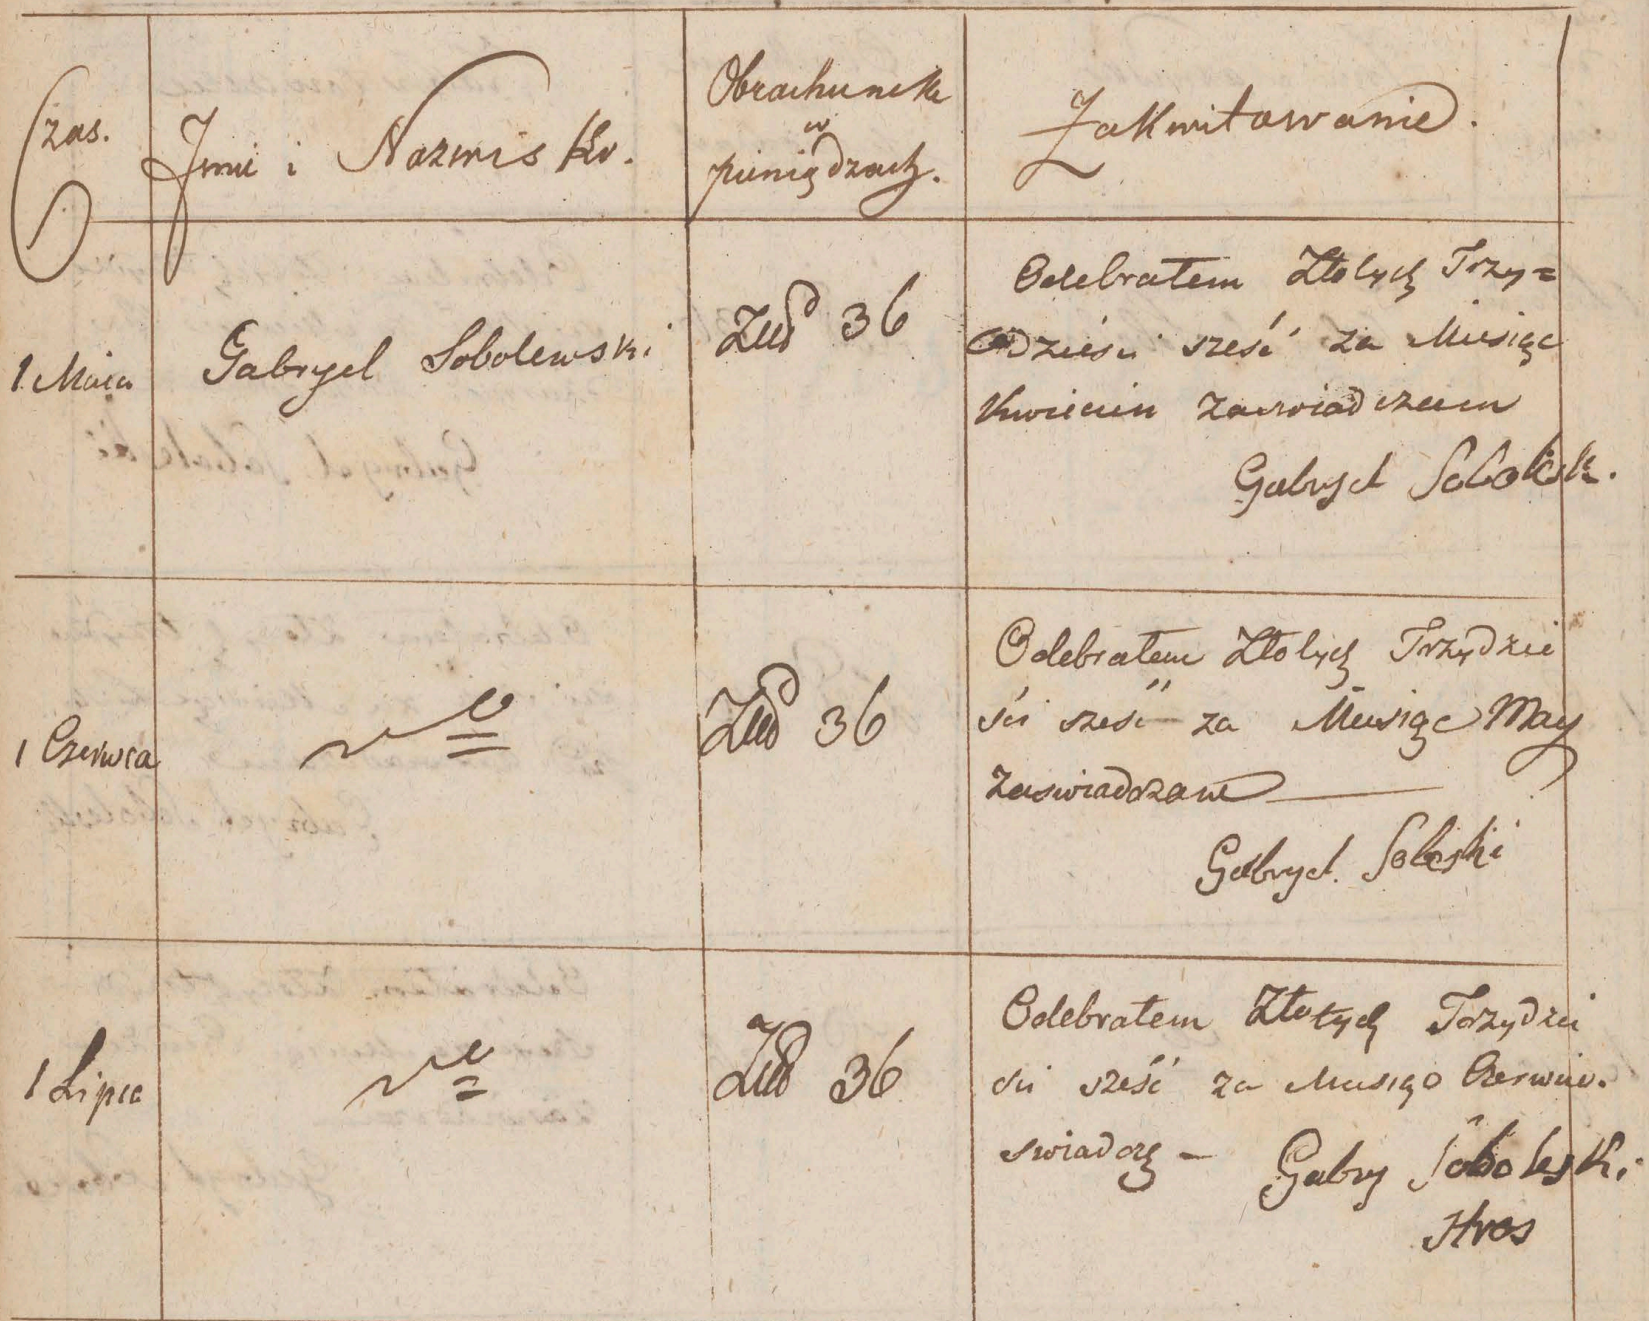 Czas.
Jmie i Nazwisko.
Obrachunek
w
pieniądzach.
Zakwitowanie.
1 Maia
Gabryel Sobolewski
36
Odebrałem Złotych Trzy=
dzieści sześć za Miesiąc
Kwiecien zaswiadczam
Gabryel
1 Czerwca
36
Odebrałem Złotych Trzydzie
ści sześć za Miesiąc May
zaswiadczam
Gabryel Soleski
1 Lipca
36
Odebrałem Złotych Trzydzie
ści sześć za Miesiąc Czerwiec.
swiadczę - Gabry Soboleski